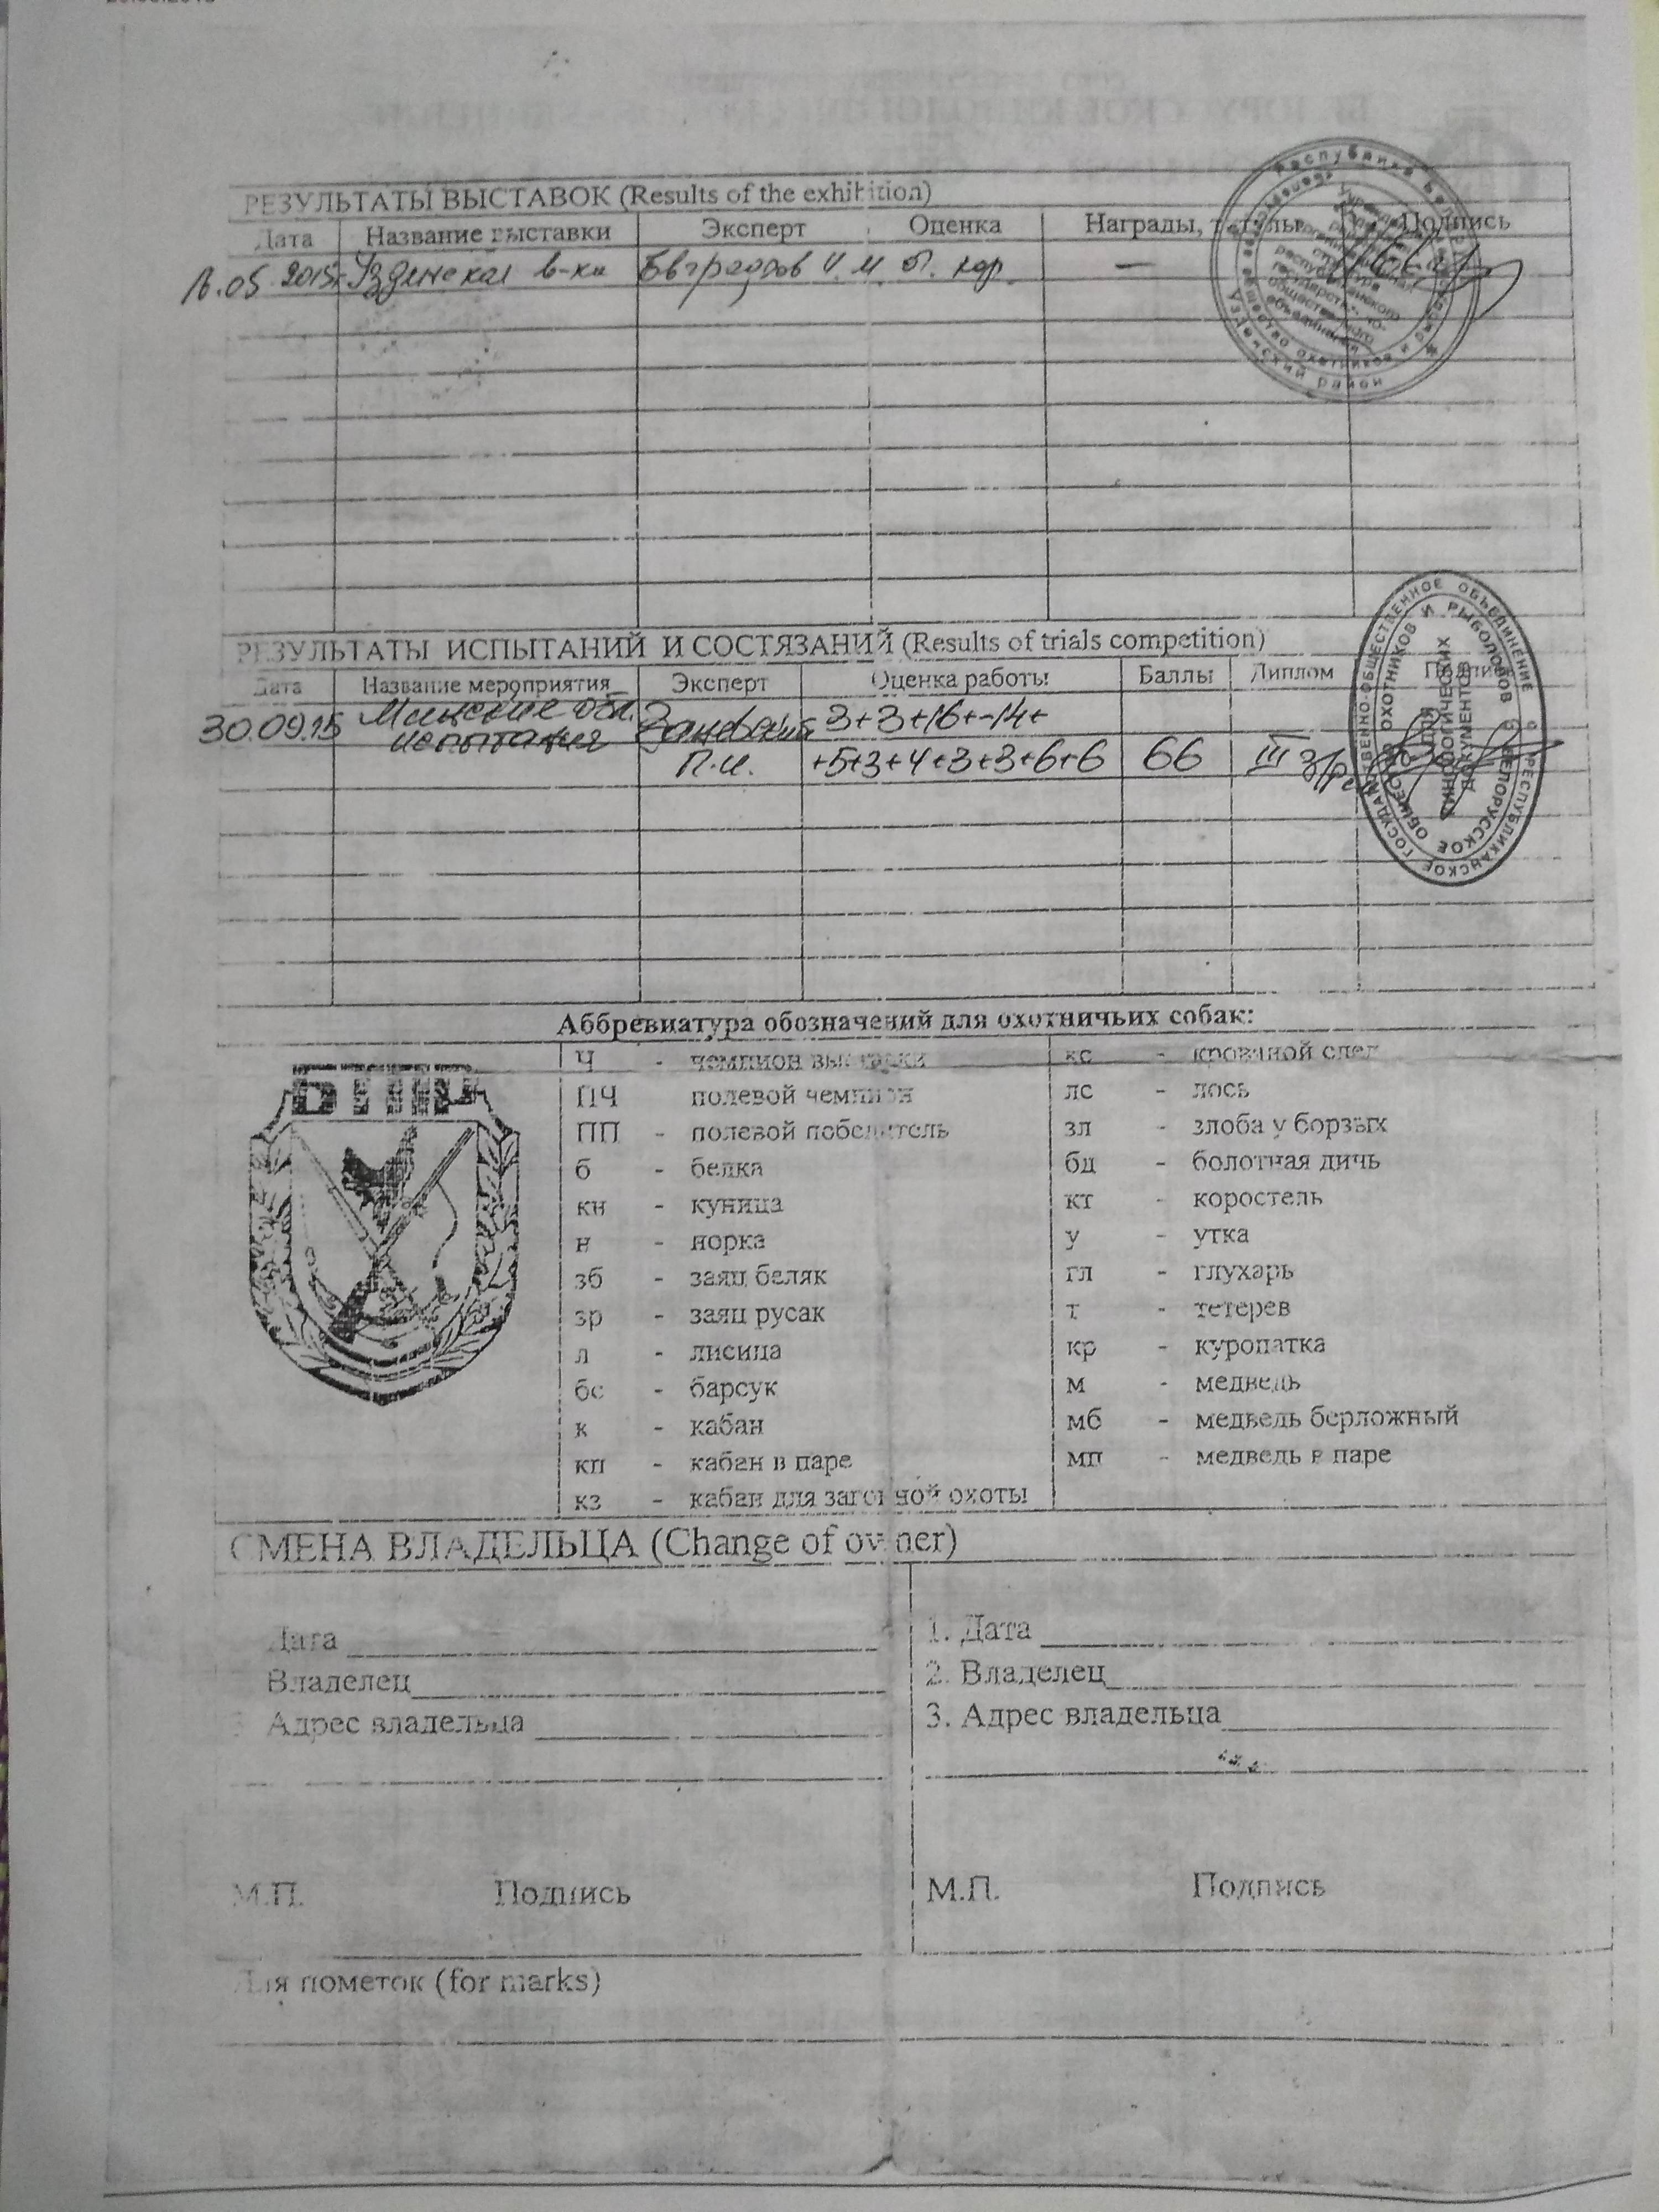 РЕЗУЛЬТАТЫ ВЫСТАВОК (Results of the exhibition)
Дата Название выставки Эксперт Оценка Награды, титулы Подпись
05.2015г Узденская в-ка И.М. О. хор. —
РЕЗУЛЬТАТЫ ИСПЫТАНИЙ И СОСТЯЗАНИЙ (Results of trials competition)
Дата Название мероприятия Эксперт Оценка работы Баллы Диплом Подпись
30.09.15 Минские обл. 3+3+16+14+
испытания П.И. +5+3+4+3+3+6+6 66 III
Аббревиатура обозначений для охотничьих собак:
Ч - чемпион выставки
ПЧ полевой чемпион
ПП - полевой победитель
б - белка
кн - куница
н - норка
зб - заяц беляк
зр - заяц русак
л - лисица
бс - барсук
к - кабан
кп - кабан в паре
кз - кабан для загонной охоты
кс - кровяной след
лс - лось
зл - злоба у борзых
бд - болотная дичь
кт - коростель
у - утка
гл - глухарь
т - тетерев
кр - куропатка
м - медведь
мб - медведь берложный
мп - медведь в паре
СМЕНА ВЛАДЕЛЬЦА (Change of owner)
Дата
Владелец
Адрес владельца
М.П. Подпись
1. Дата
2. Владелец
3. Адрес владельца
М.П. Подпись
Для пометок (for marks)
РЕСПУБЛИКАНСКОЕ ГОСУДАРСТВЕННО-ОБЩЕСТВЕННОЕ ОБЪЕДИНЕНИЕ
БЕЛОРУССКОЕ ОБЩЕСТВО ОХОТНИКОВ И РЫБОЛОВОВ
ДЛЯ
КИНОЛОГИЧЕСКИХ
ДОКУМЕНТОВ
Узденский район